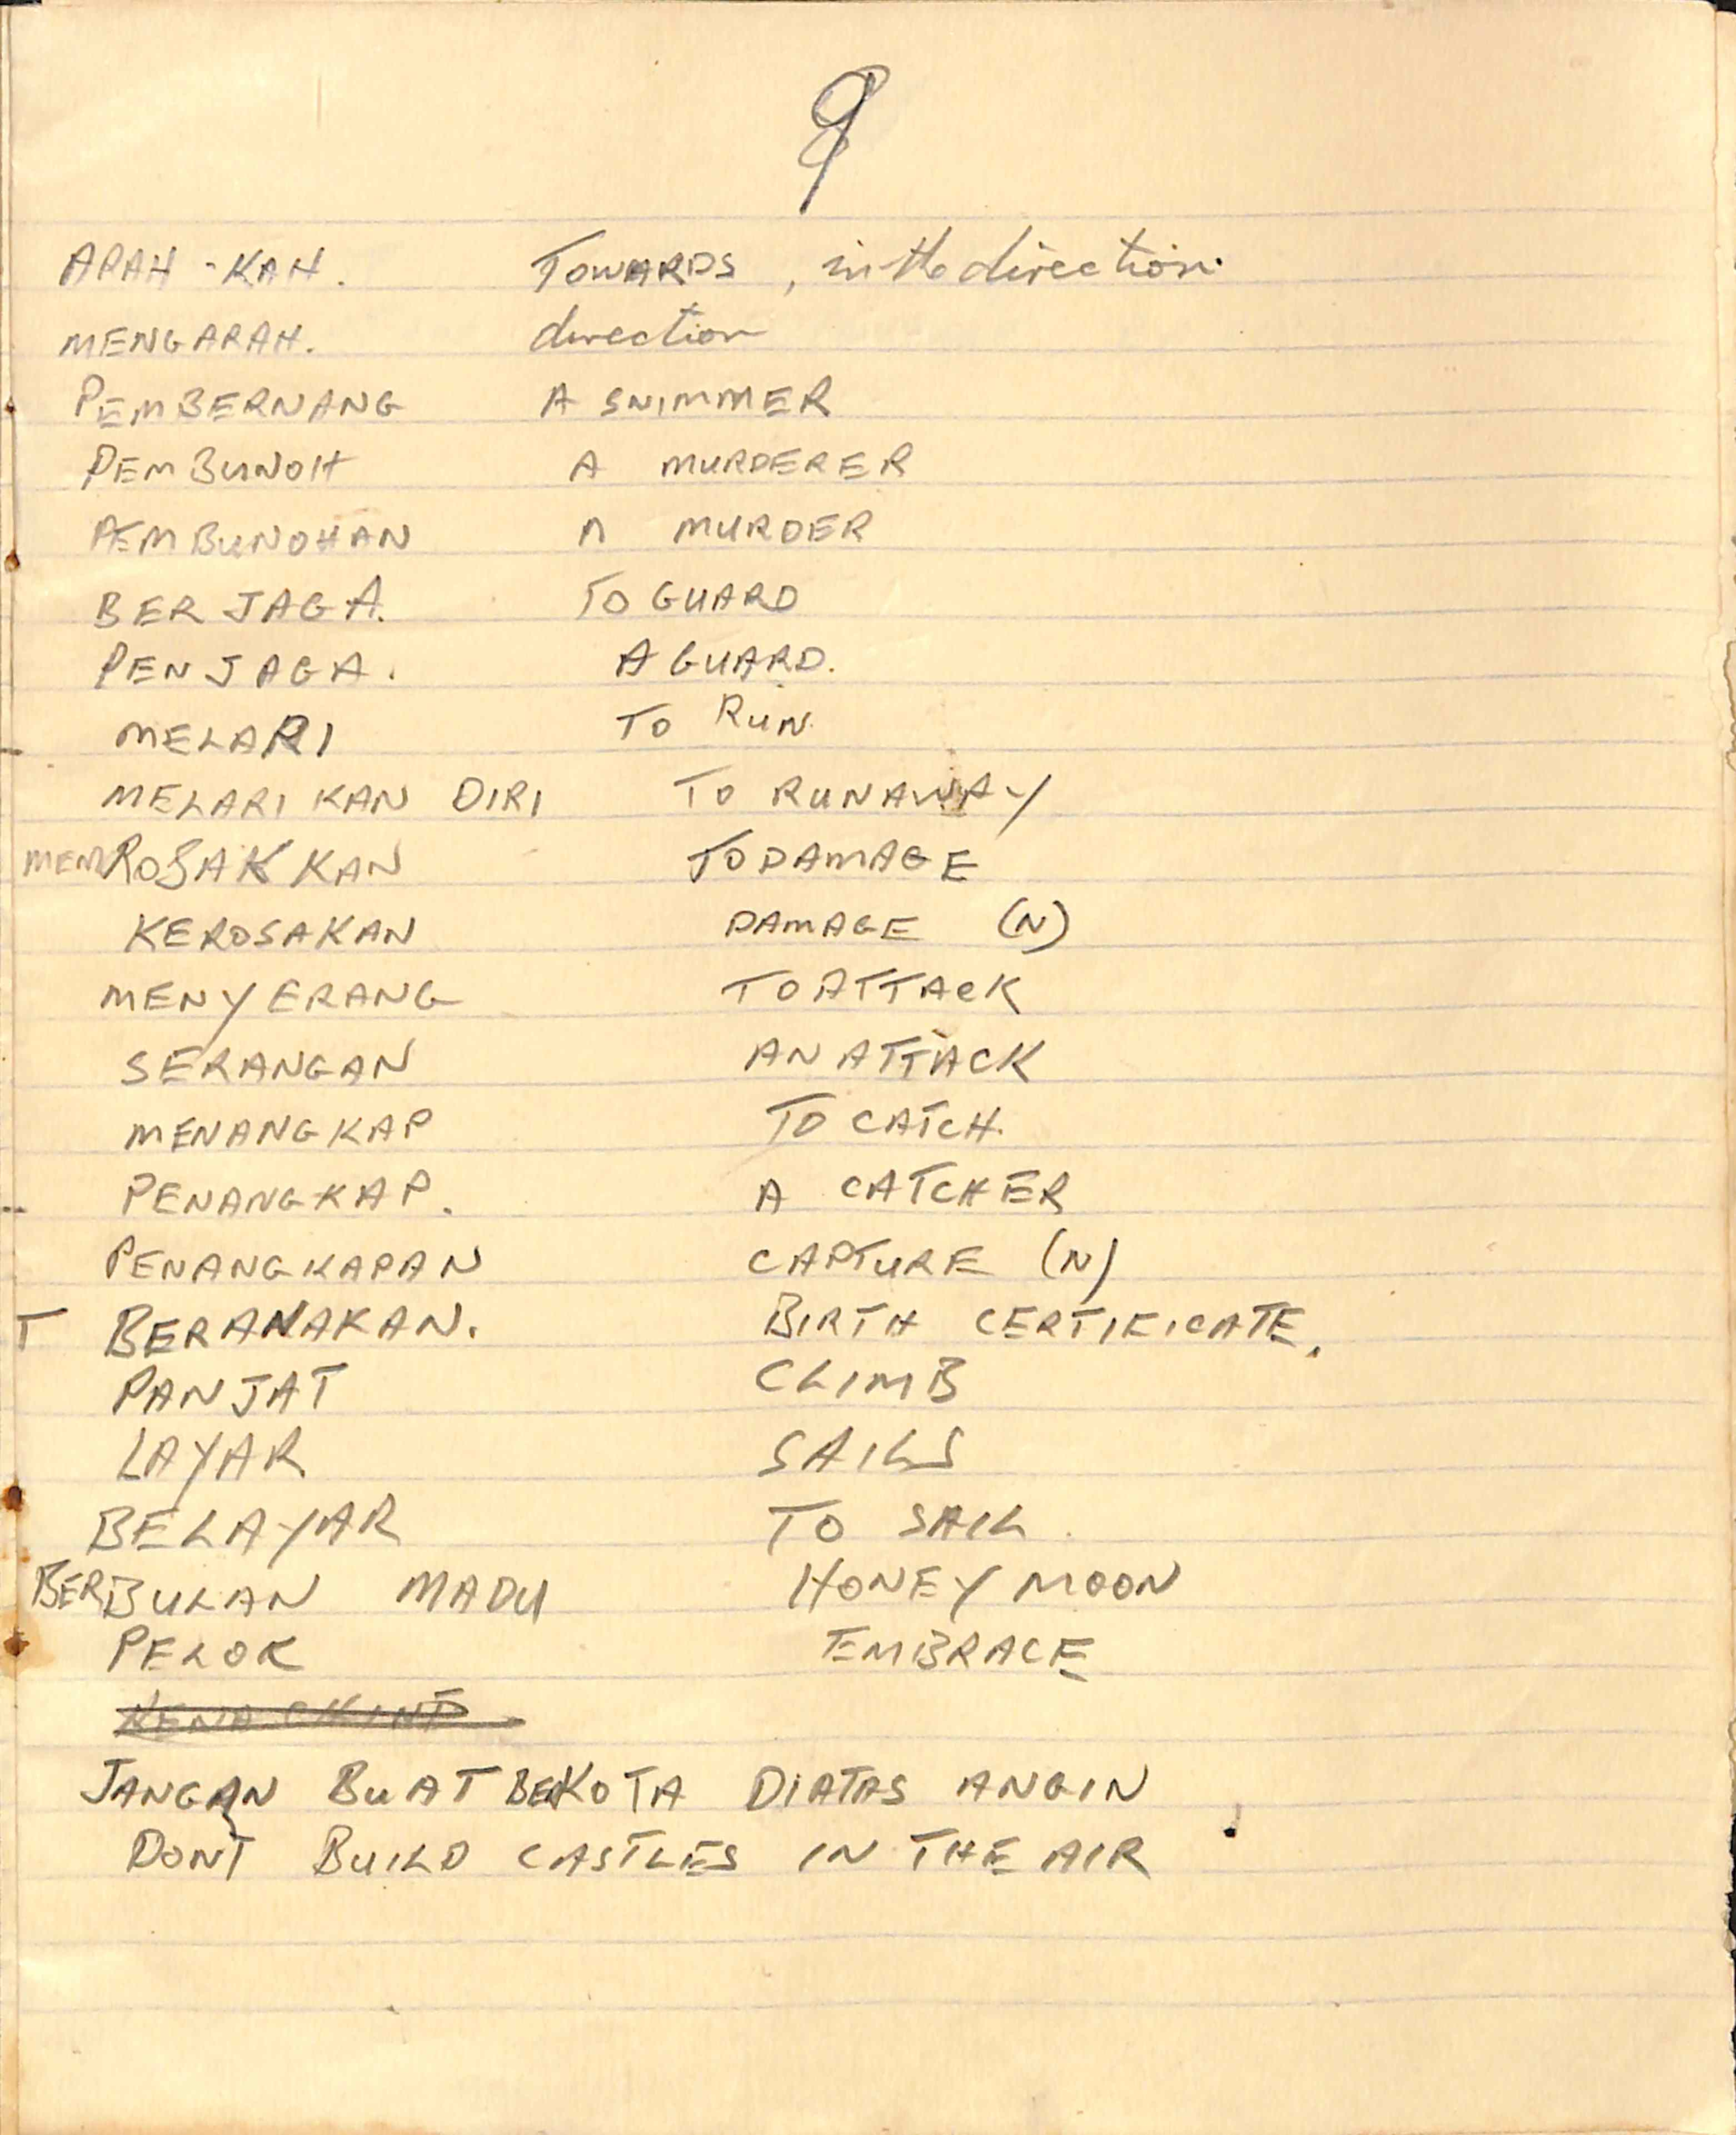 9
ARAH - KAH. TOWARDS, in the direction.
MENGARAH. direction
PEMBERNANG A SWIMMER
PEMBUNOH A MURDERER
PEMBUNOHAN A MURDER
BER JAGA. TO GUARD
PENJAGA. A GUARD.
MELARI TO RUN.
MELARI KAN DIRI TO RUNAWAY
MEMROSAKKAN TO DAMAGE
KEROSAKAN DAMAGE (N)
MENYERANG TO ATTACK
SERANGAN AN ATTACK
MENANGKAP TO CATCH.
PENANGKAP. A CATCHER
PENANGKAPAN CAPTURE (N)
T BERANAKAN. BIRTH CERTIFICATE.
PANJAT CLIMB
LAYAR SAILS
BELAYAR TO SAIL.
BERBULAN MADU HONEY MOON
PELOK EMBRACE
JANGAN BUAT BERKOTA DIATAS ANGIN
DONT BUILD CASTLES IN THE AIR